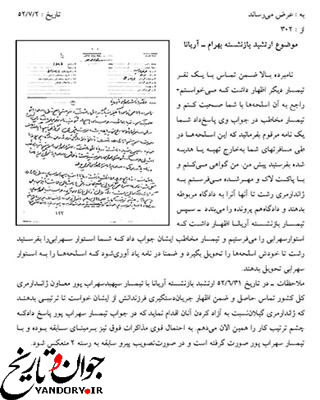 به : عرض می‌رساند
تاریخ : ۵۲/۷/۲
از : ۳۰۲
موضوع ارتشبد بازنشسته بهرام ـ آریانا
نامبرده بالا ضمن تماس با یک نفر
تیمسار دیگر اظهار داشت که می‌خواستم-
راجع به آن اسلحه‌ها با شما صحبت کنم و
تیمسار مخاطب در جواب وی پاسخ‌داد شما
یک نامه مرقوم بفرمائید که این اسلحه‌ها در
طی مسافرتهای شما به‌خارج تهیه یا هدیه
شده بفرستید پیش من. من گواهی می‌کنم و
با پاکت لاک و مهر‌شده می‌فرستم به
ژاندارمری رشت تا آنها آنرا به دادگاه مربوطه
بدهند و دادگاه‌هم پرونده را می‌بندد ـ سپس
تیمسار بازنشسته آریانا اظهار داشت که
استوارسهرابی را می‌فرستیم و تیمسار مخاطب ایشان جواب داد که شما استوار سهرابی‌رابفرستید
رشت تا خودش اسلحه‌ها را تحویل بگیرد و ضمنا در نامه یاد آوری‌شود که اسلحه‌ها را به استوار
سهرابی تحویل بدهند.
ملاحظات ـ در تاریخ ۵۲/۶/۳۱ ارتشبد بازنشسته آریانا با تیمسار سپهبدسهراب پور معاون ژاندارمری
کل کشور تماس حاصل و ضمن اظهار جریان‌دستگیری فرزندانش از ایشان خواست تا ترتیبی بدهند
که ژاندارمری گیلان‌نسبت به آزاد کردن آنان اقدام نماید که در جواب تیمسار سهراب پور پاسخ دادکه
چشم ترتیب کار را همین الان می‌دهم. به احتمال قوی مذاکرات فوق نیز برمبنای سابقه بوده و با
تیمسار سهراب پور صورت گرفته است و در صورت‌تصویب پیرو سابقه به رسته ۲ منعکس شود.
جوان و تاریخ
YANDORY.IR